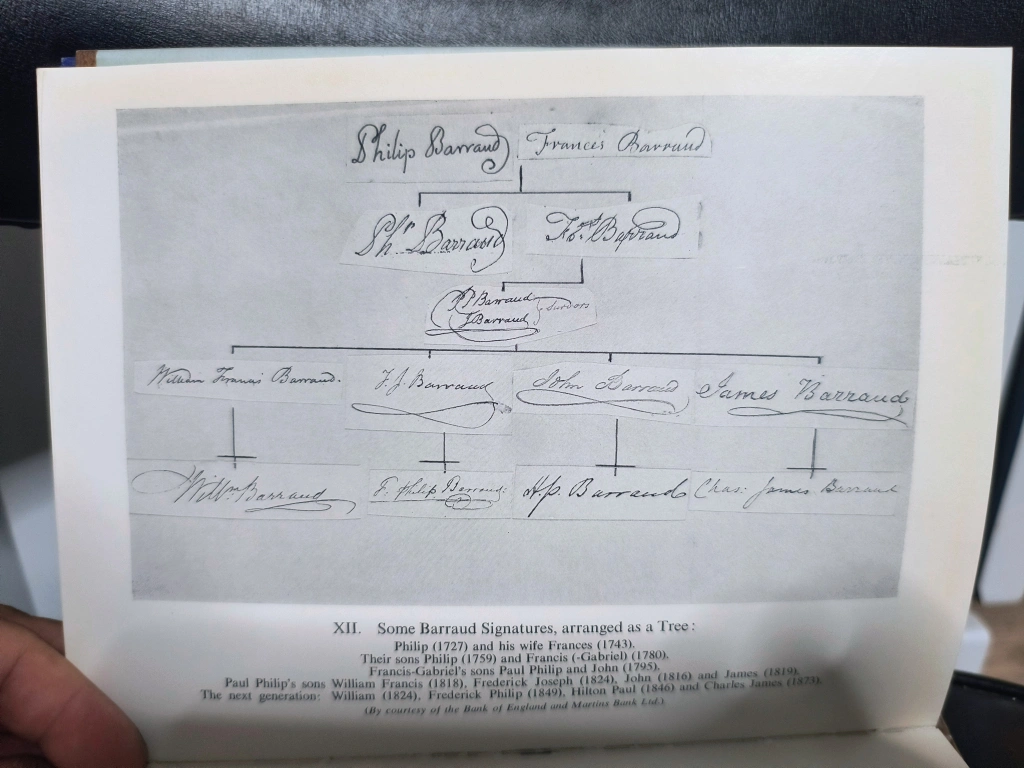 Philip Barraud Frances Barraud
Phr. Barraud Frs. Barraud
P P Barraud
J Barraud
William Francis Barraud. F. J. Barraud John Barraud James Barraud
Willm Barraud F. Philip Barraud: H. P. Barraud Chas: James Barraud
XII. Some Barraud Signatures, arranged as a Tree:
Philip (1727) and his wife Frances (1743).
Their sons Philip (1759) and Francis (-Gabriel) (1780).
Francis-Gabriel's sons Paul Philip and John (1795).
Paul Philip's sons William Francis (1818), Frederick Joseph (1824), John (1816) and James (1819).
The next generation: William (1824), Frederick Philip (1849), Hilton Paul (1846) and Charles James (1873).
(By courtesy of the Bank of England and Martins Bank Ltd.)